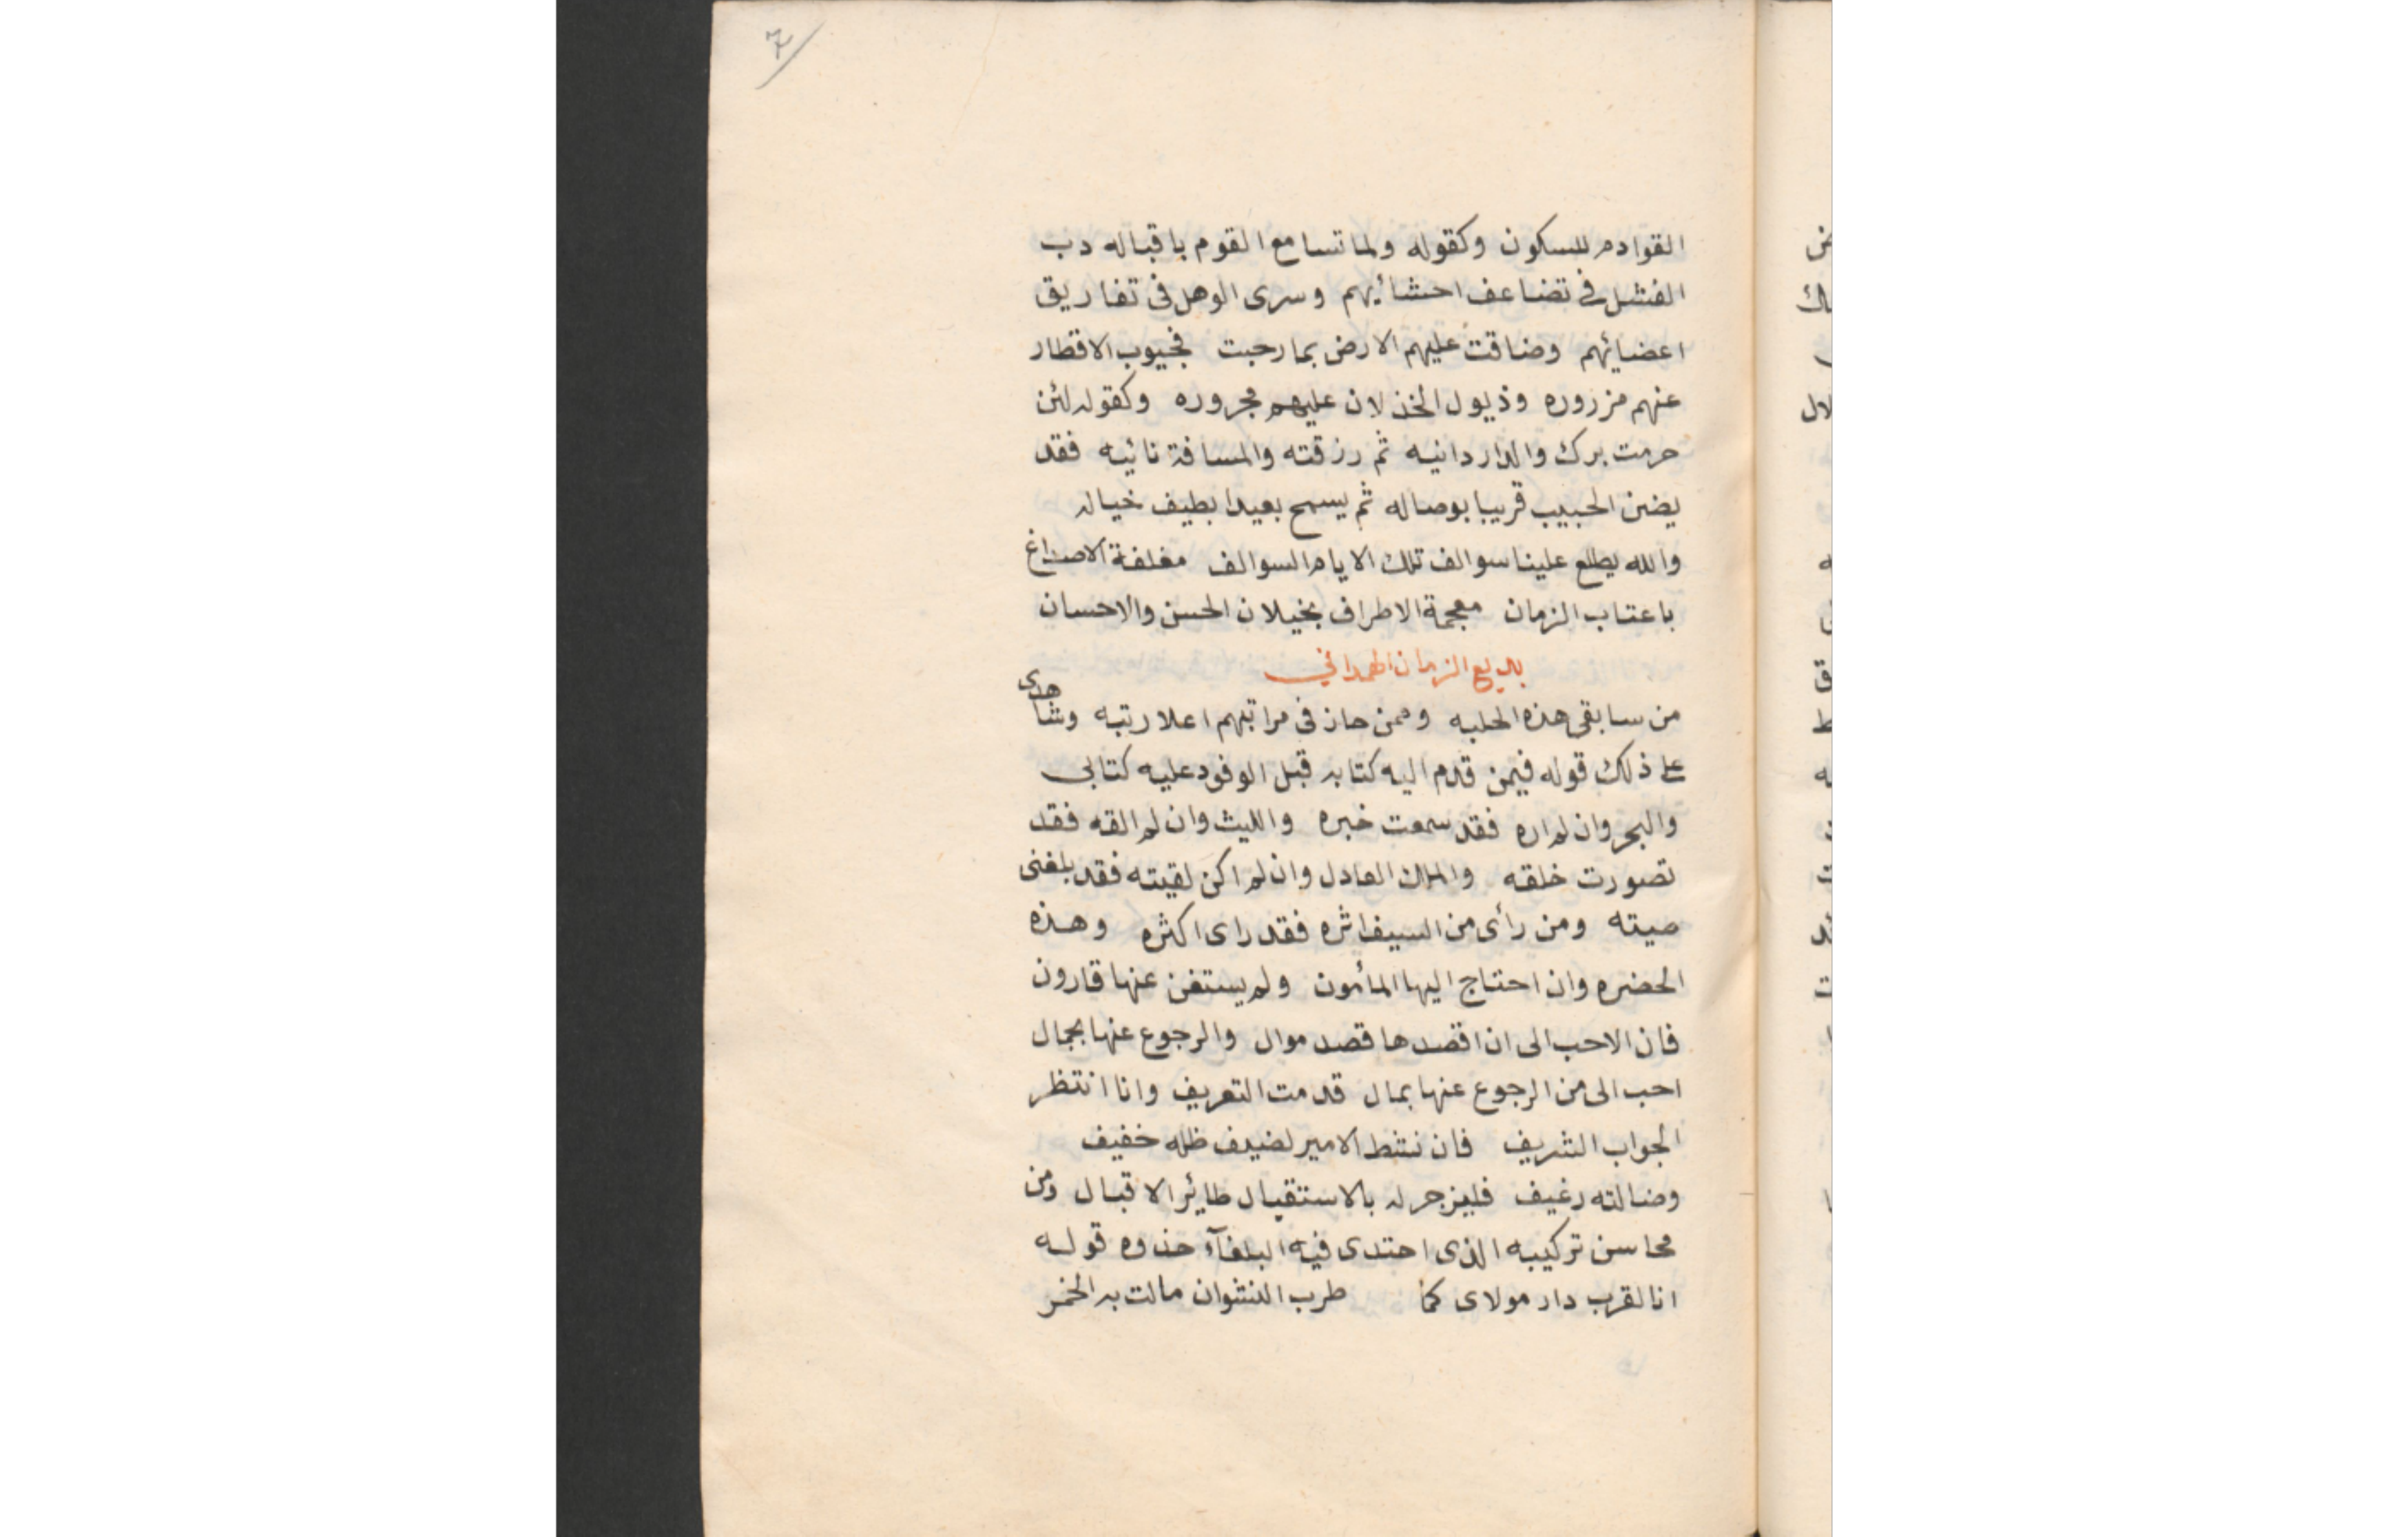 القوادم للسكون وكقوله ولما تسامع القوم باقباله دب
الفشل فى تضاعف احشائهم وسرى الوهل فى تفاريق
اعضائهم وضاقت عليهم الارض بما رحبت فجيوب الاقطار
عنهم مزروره وذيول الخذلان عليهم مجروره وكقوله لئن
حرمت برك والدار دانيه ثم رزقته والمسافة نائيه فقد
يضن الحبيب قريبا بوصاله ثم يسمح بعيدا بطيف خياله
والله يطلع علينا سوالف تلك الايام السوالف مغلفة الاصداغ
باعتاب الزمان معجمة الاطراف بخيلان الحسن والاحسان
بديع الزمان الهمدانى
من سابقى هذه الحلبه وممن حاز فى مراتبهم اعلا رتبه وشاهدى
على ذلك قوله فيمن قدم اليه كتابه قبل الوفود عليه كتابى
والبحر وان لم اره فقد سمعت خبره والليث وان لم القه فقد
تصورت خلقه والملك العادل وان لم اكن لقيته فقد بلغنى
صيته ومن رأى من السيف اثره فقد راى اكثره وهذه
الحضره وان احتاج اليها المأمون ولم يستغن عنها قارون
فان الاحب الى ان اقصدها قصد موال والرجوع عنها بجمال
احب الى من الرجوع عنها بمال قدمت التعريف وانا انتظر
الجواب الشريف فان نشط الامير لضيف ظله خفيف
وضالته رغيف فليزجر له بالاستقبال طائر الاقبال ومن
محاسن تركيبه الذى احتدى فيه البلغآء حذوه قوله
انا لقرب دار مولاى كما طرب النشوان مالت به الخمر